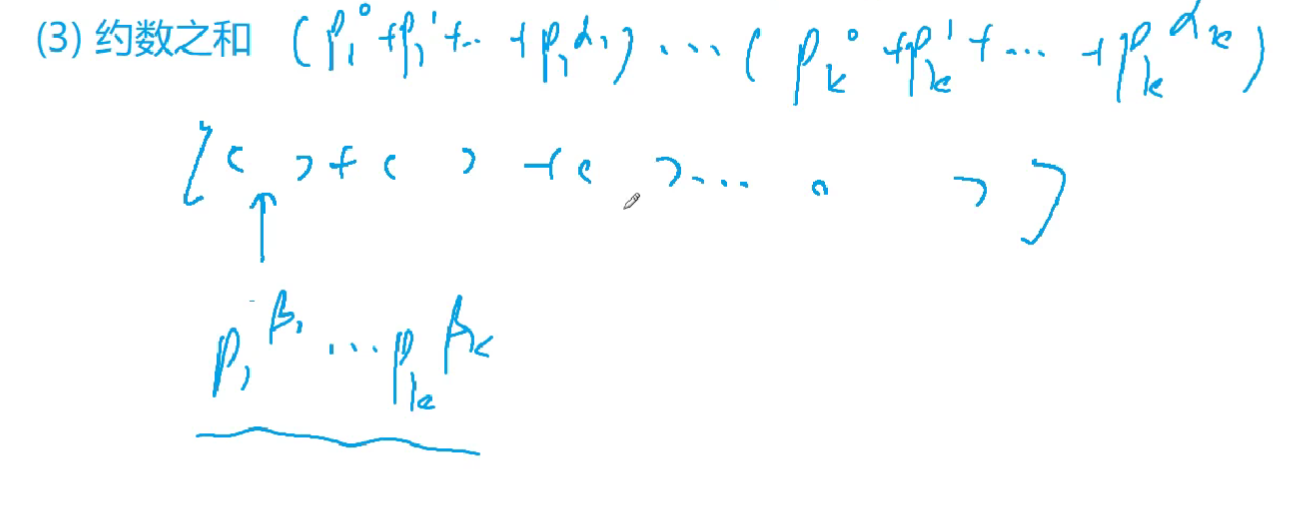 (3) 约数之和 (p₁⁰+p₁¹+…+p₁^α₁)…(pₖ⁰+pₖ¹+…+pₖ^αₖ)
[( )+( )+( )… ( )]
p₁^β₁…pₖ^βₖ